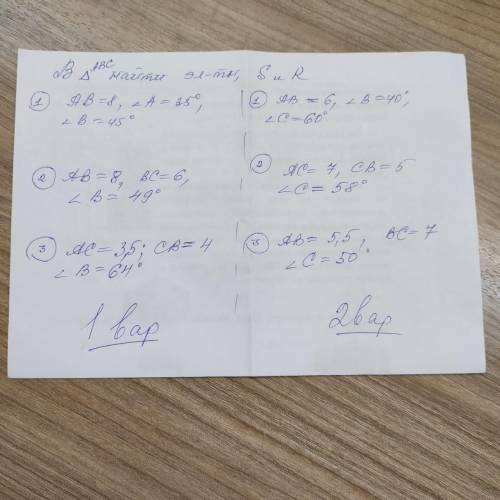 В △ABC найти эл-ты, S и R
① AB = 8, ∠A = 35°,
∠B = 45°
② AB = 8, BC = 6,
∠B = 49°
③ AC = 3,5; CB = 4
∠B = 64°
1 вар
① AB = 6, ∠B = 40°,
∠C = 60°
② AC = 7, CB = 5
∠C = 58°
③ AB = 5,5, BC = 7
∠C = 50°
2 вар